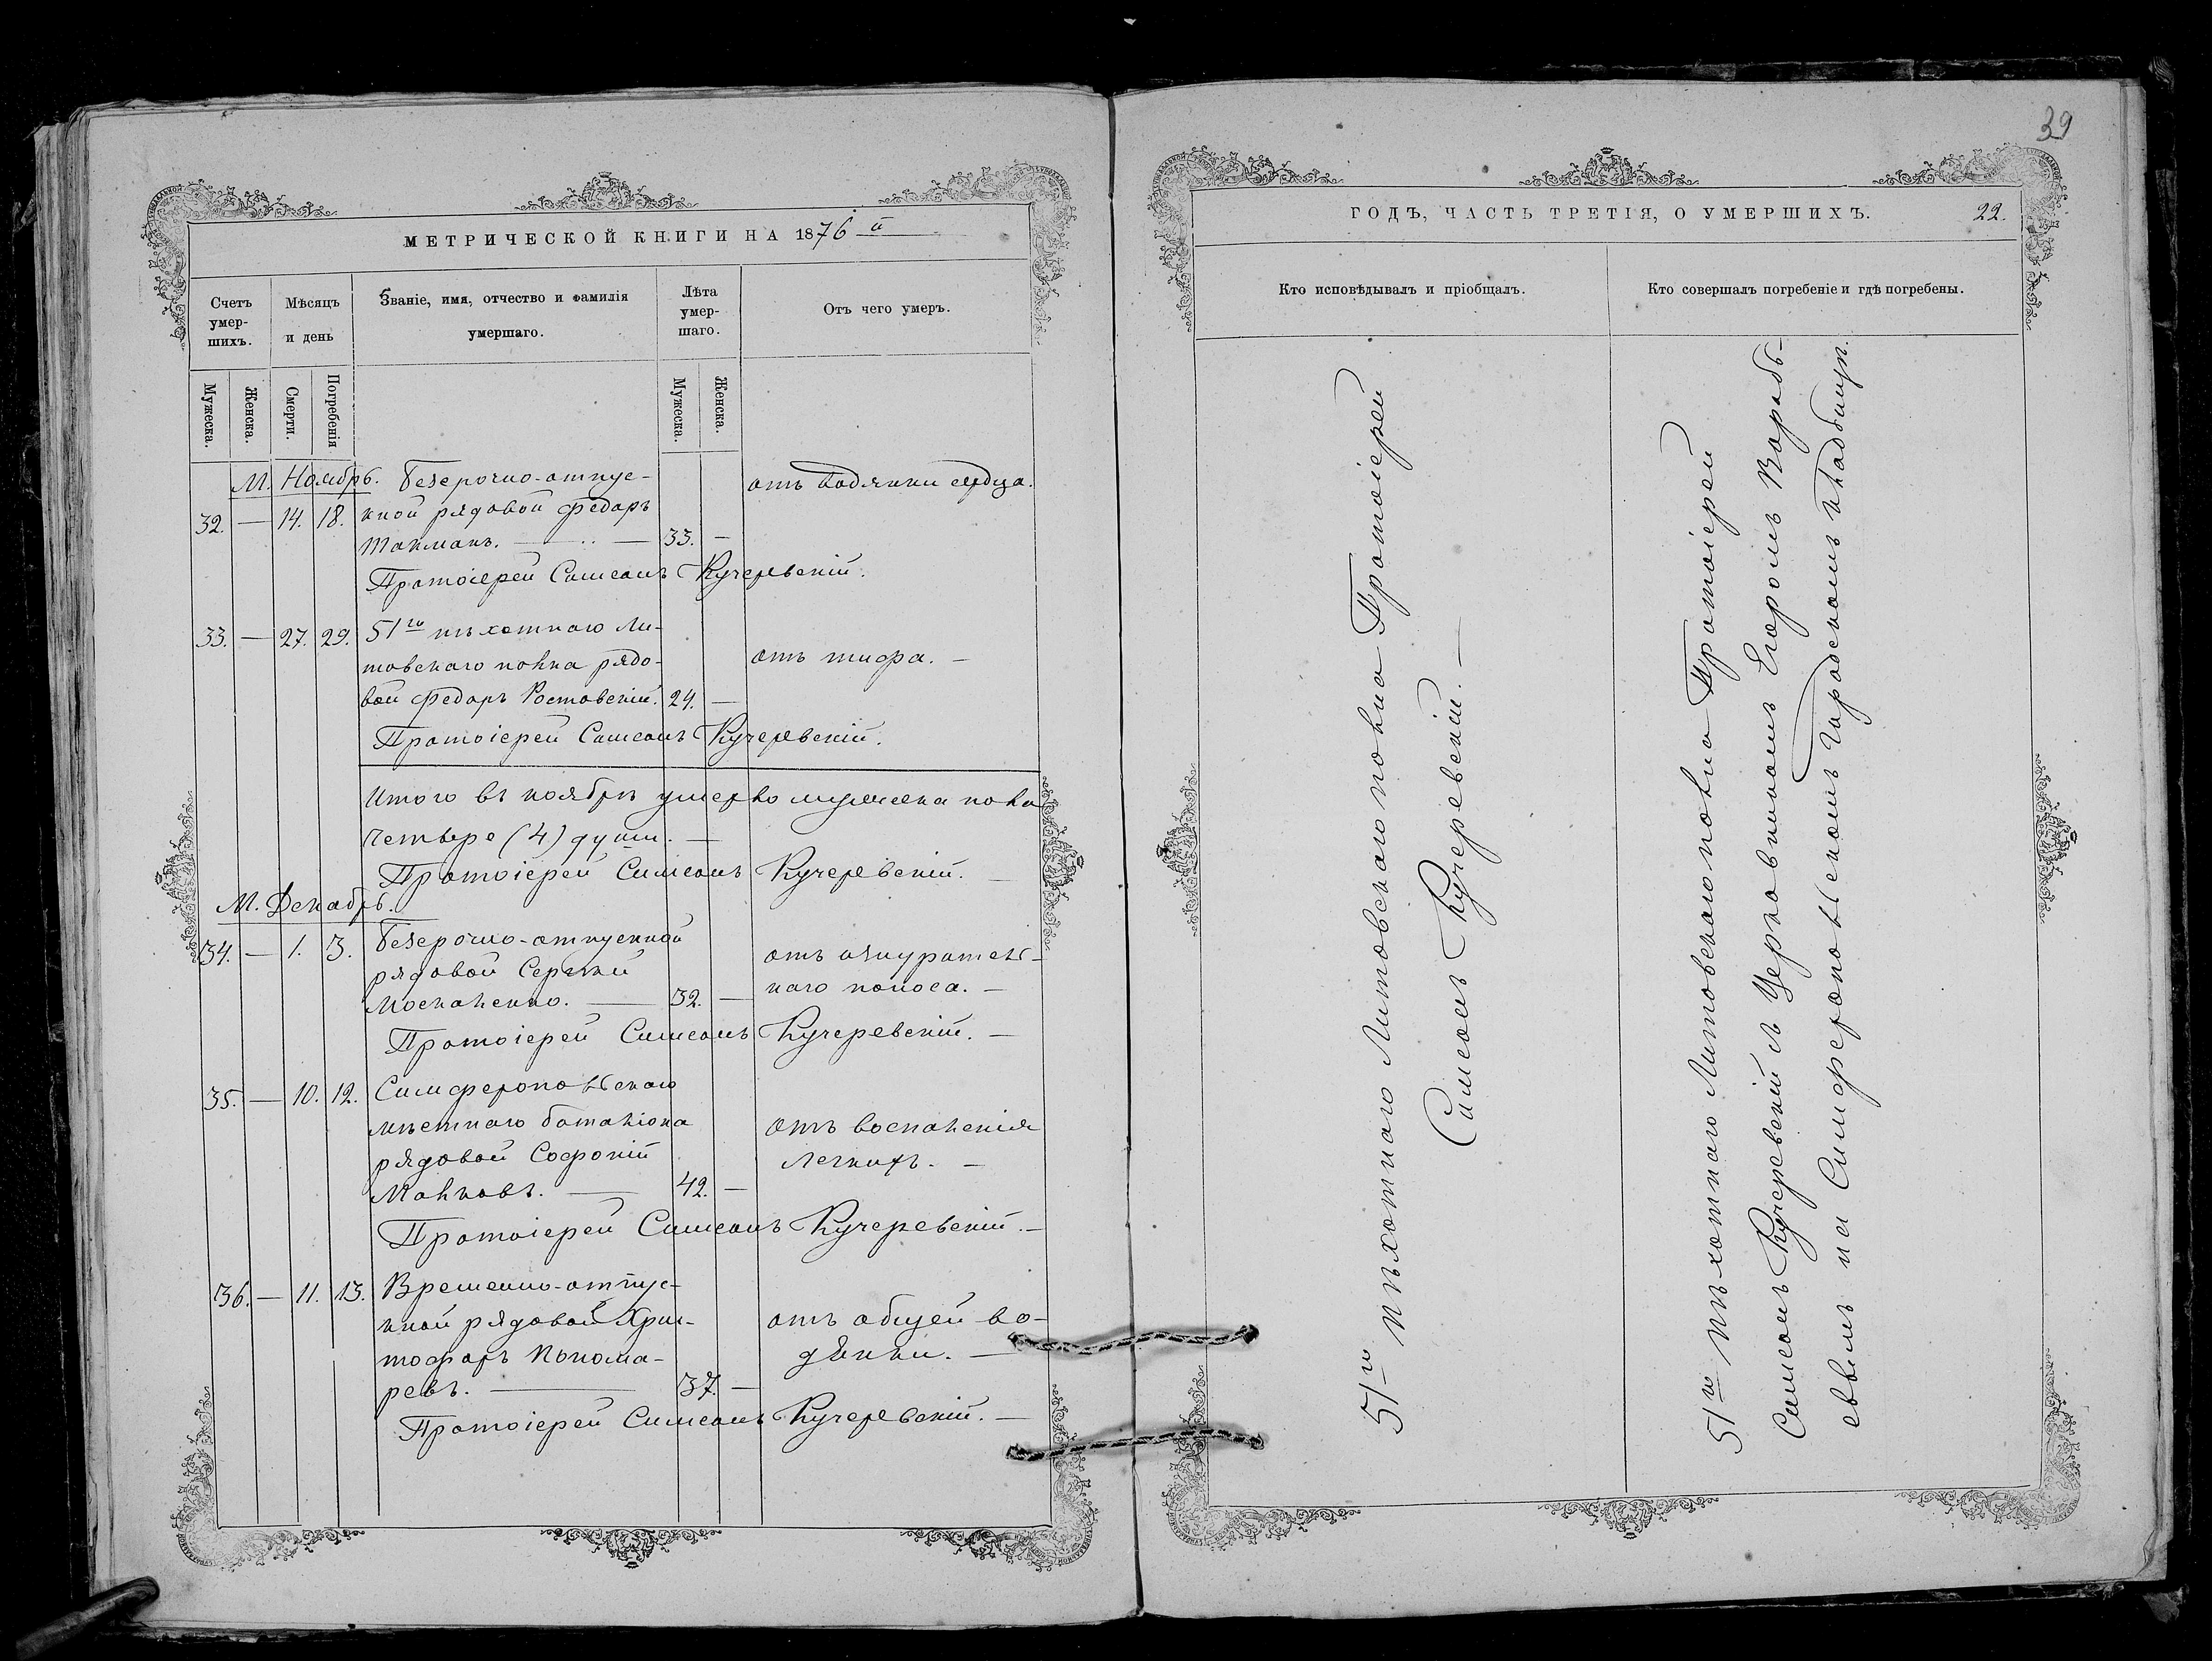 МЕТРИЧЕСКОЙ КНИГИ НА 1876 й
Счетъ умершихъ.
Мѣсяцъ и день
Званіе, имя, отчество и фамилія умершаго.
Лѣта умершаго.
Отъ чего умеръ.
Мужеска.
Женска.
Смерти.
Погребенія
Мужеска.
Женска.
М. Ноябрь. Безсрочно-отпус-
32. — 14. 18. кной рядовой Федоръ
Токманъ. — 33. —
отъ водянки сердца.
Протоіерей Симеонъ Кучеревскій.
33. — 27. 29. 51го пѣхотнаго Ли-
товскаго полка рядо-
вой Федоръ Ростовскій. 24. —
отъ тифа. —
Протоіерей Симеонъ Кучеревскій.
Итого въ ноябрѣ умерло мужеска пола
четыре (4) души. —
Протоіерей Симеонъ Кучеревскій. —
М. Декабрь.
34. — 1. 3. Безсрочно-отпускной
рядовой Сергѣй
Москаленко. — 32. —
отъ изнуритель-
наго поноса. —
Протоіерей Симеонъ Кучеревскій. —
35. — 10. 12. Симферопольскаго
мѣстнаго баталіона
рядовой Софоній
Малковъ. — 42. —
отъ воспаленія
легкихъ. —
Протоіерей Симеонъ Кучеревскій. —
36. — 11. 13. Временно-отпус-
кной рядовой Хрис-
тофоръ Понома-
ревъ. — 37. —
отъ общей во-
дянки. —
Протоіерей Симеонъ Кучеревскій. —
39
ГОДЪ, ЧАСТЬ ТРЕТІЯ, О УМЕРШИХЪ. 22.
Кто исповѣдывалъ и пріобщалъ.
Кто совершалъ погребеніе и гдѣ погребены.
51го пѣхотнаго Литовскаго полка Протоіерей
Симеонъ Кучеревскій. —
51го пѣхотнаго Литовскаго полка Протоіерей
Симеонъ Кучеревскій съ Церковникомъ Егоромъ Воробь-
евымъ на Симферопольскомъ Городскомъ кладбищѣ.